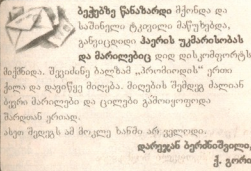 ბეჭებზე წანაზარდი მქონდა და
საშინელი ტკივილი მაწუხებდა,
განვიცდიდი ჰაერის უკმარისობას
და მარილებიც დიდ დისკომფორტს
მიქმნიდა. შევიძინე ბალზამ „პრომიოდის“ ერთი
ქილა და დავიწყე მიღება. მიღების შემდეგ ძალიან
ბევრი მარილები და ცილები გამოიყოფოდა
შარდთან ერთად.
ასეთ შედეგს ამ მოკლე ხანში არ ველოდი.
დარეჯან ბერძნიშვილი,
ქ. გორი